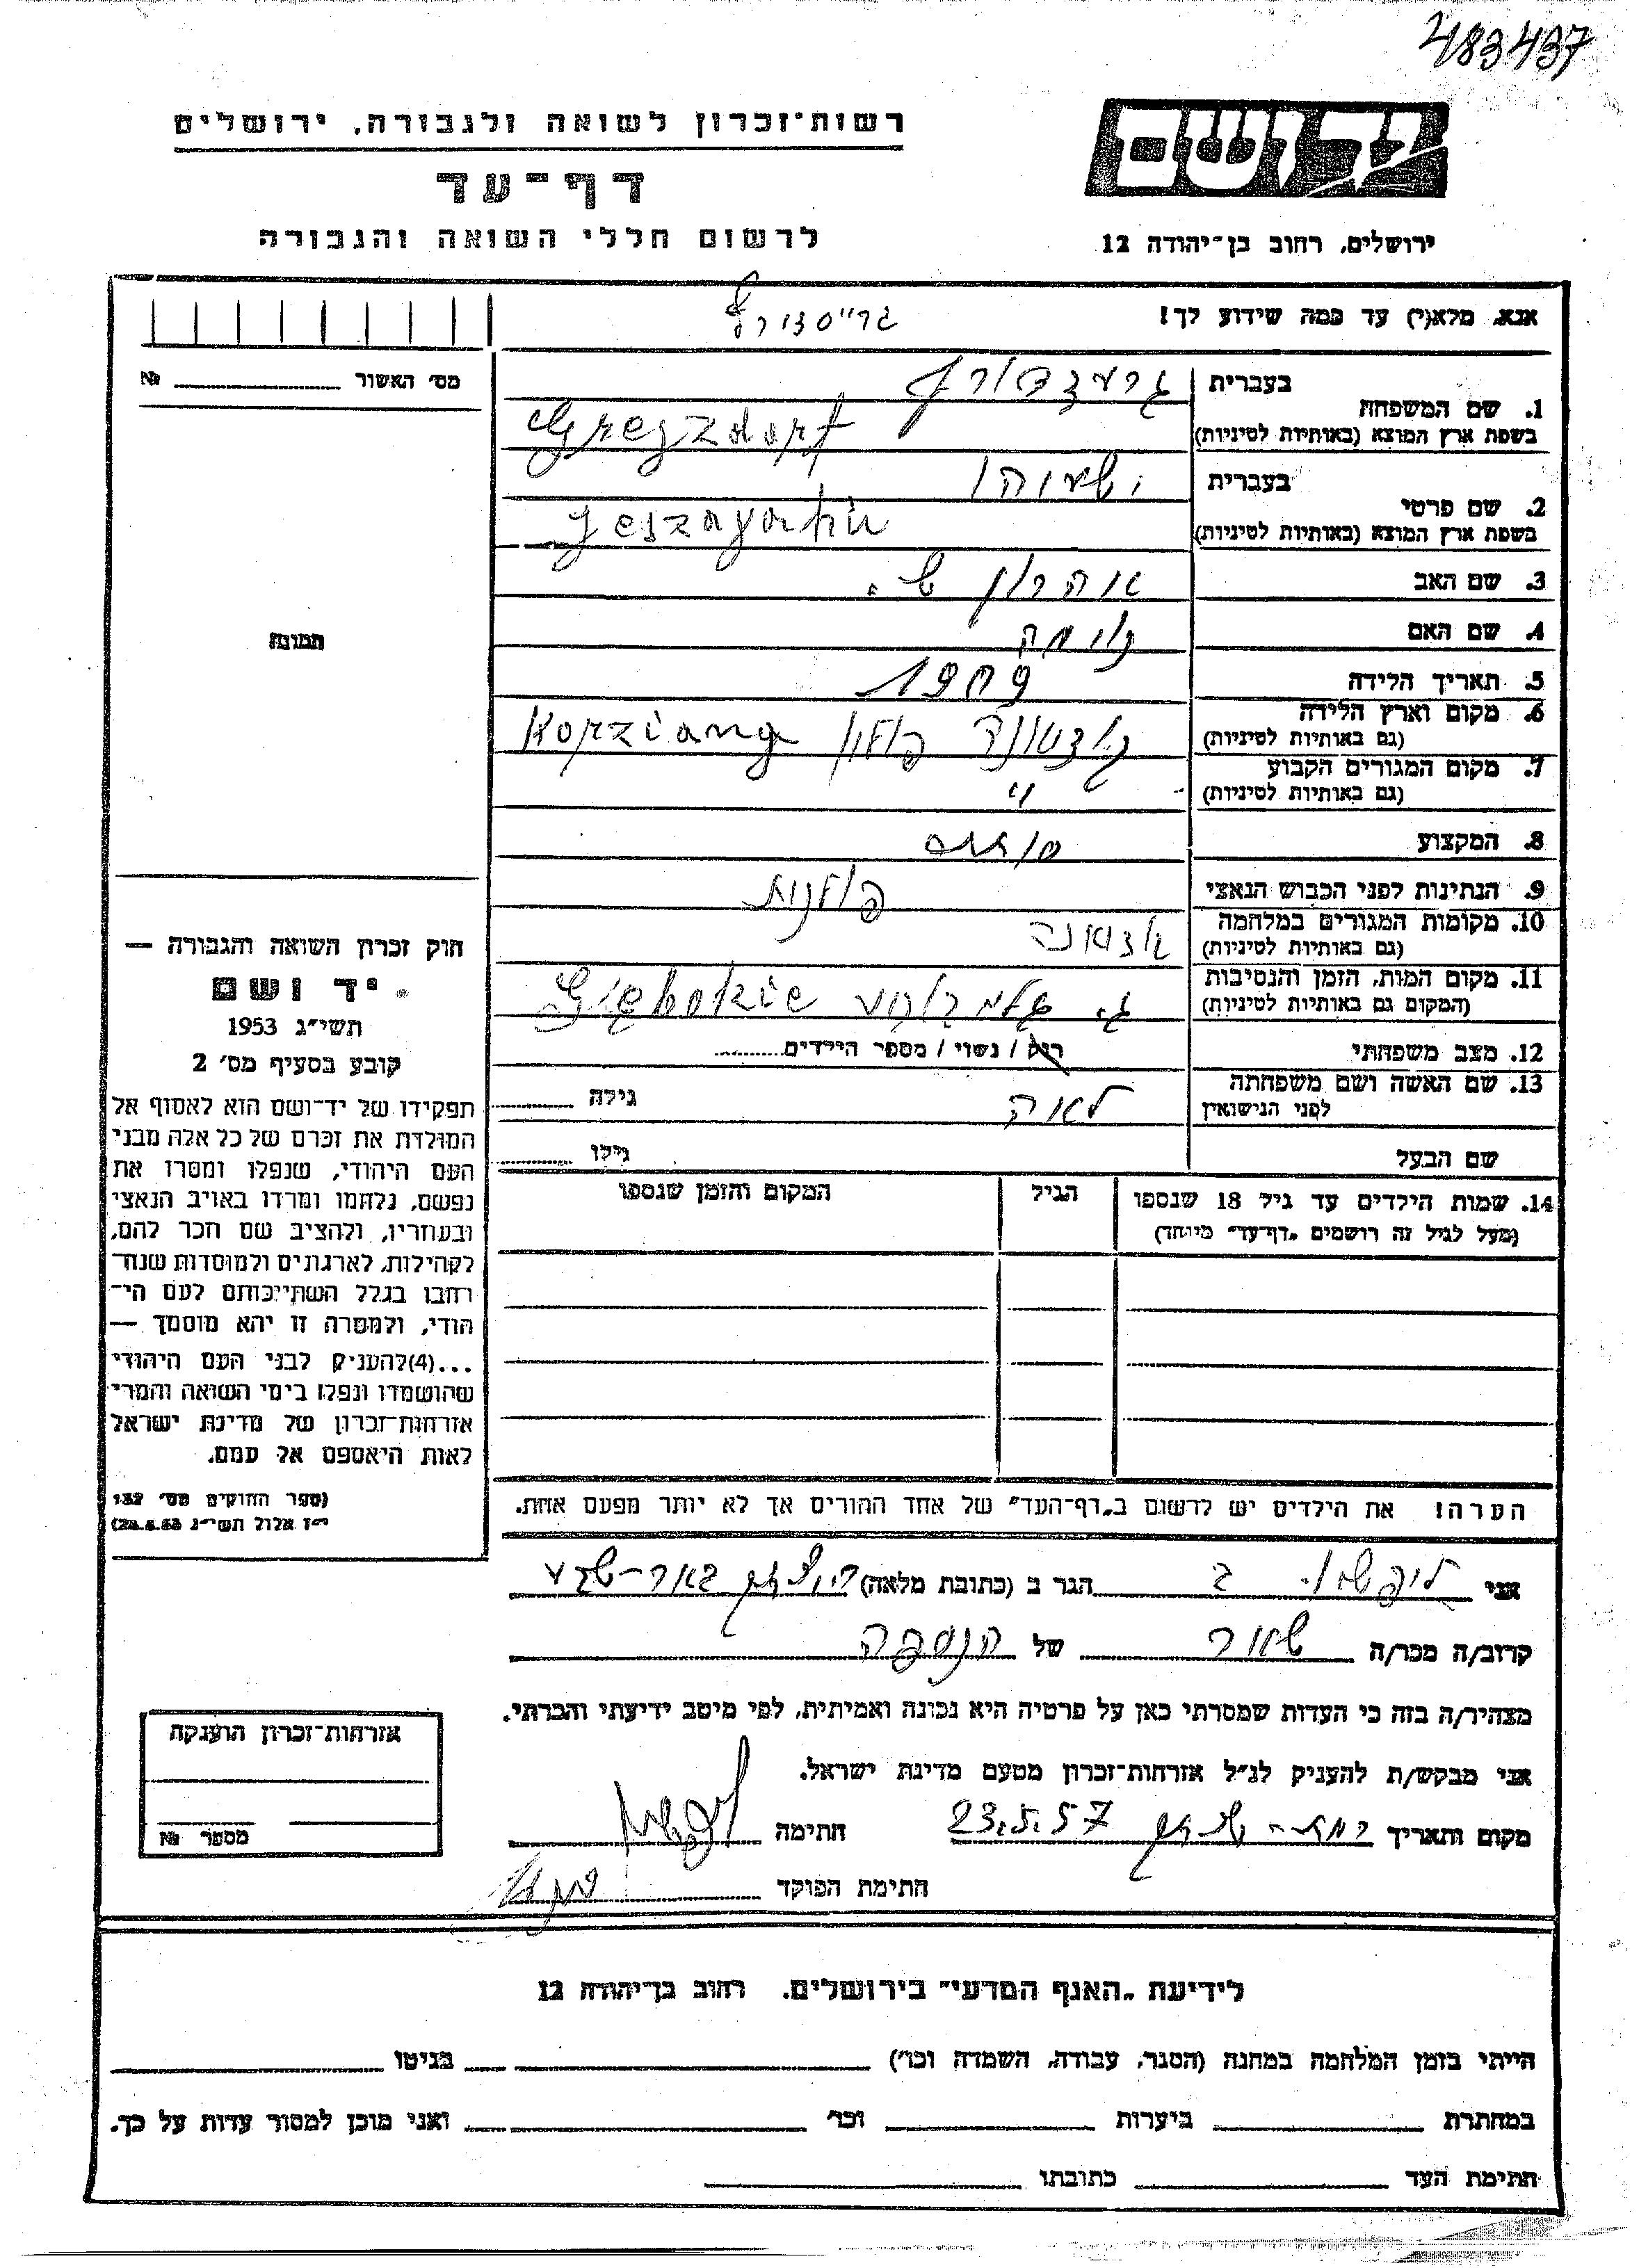 483437
יד ושם
רשות־זכרון לשואה ולגבורה, ירושלים
דף־עד
לרשום חללי השואה והגבורה
ירושלים, רחוב בן־יהודה 12
אנא, מלא(י) עד כמה שידוע לך!
גרייסדורף
מס׳ האשור № 
1. שם המשפחה
בעברית
בשפת ארץ המוצא (באותיות לטיניות)
Gregzdorf
2. שם פרטי
בעברית ישעיהו
בשפת ארץ המוצא (באותיות לטיניות)
Jeszayahu
3. שם האב אהרון ש.
4. שם האם
5. תאריך הלידה 1909
6. מקום וארץ הלידה
(גם באותיות לטיניות)
פולין Korziang
7. מקום המגורים הקבוע
(גם באותיות לטיניות)
"
8. המקצוע סוחר
9. הנתינות לפני הכבוש הנאצי פולנית
10. מקומות המגורים במלחמה
(גם באותיות לטיניות)
11. מקום המות, הזמן והנסיבות
(המקום גם באותיות לטיניות)
Giebokie
12. מצב משפחתי רווק / נשוי / מספר הילדים
13. שם האשה ושם משפחתה
לפני הנישואין
לאה גילה
שם הבעל גילו
14. שמות הילדים עד גיל 18 שנספו
(מעל לגיל זה רושמים „דף־עד״ מיוחד)
הגיל
המקום והזמן שנספו
הערה! את הילדים יש לרשום ב„דף־העד״ של אחד ההורים אך לא יותר מפעם אחת.
תמונה
חוק זכרון השואה והגבורה —
יד ושם
תשי״ג 1953
קובע בסעיף מס׳ 2
תפקידו של יד־ושם הוא לאסוף אל
המולדת את זכרם של כל אלה מבני
העם היהודי, שנפלו ומסרו את
נפשם, נלחמו ומרדו באויב הנאצי
ובעוזריו, ולהציב שם וזכר להם,
לקהילות, לארגונים ולמוסדות שנח־
רבו בגלל השתייכותם לעם הי־
הודי, ולמטרה זו יהא מוסמך —
...(4)להעניק לבני העם היהודי
שהושמדו ונפלו בימי השואה והמרי
אזרחות־זכרון של מדינת ישראל
לאות היאספם אל עמם.
(ספר החוקים מס׳ 132
י״ז אלול תשי״ג 28.8.53)
אני ליפשיץ ב הגר ב (כתובת מלאה) באר-שבע
קרוב/ה מכר/ה שאר של הנספה
מצהיר/ה בזה כי העדות שמסרתי כאן על פרטיה היא נכונה ואמיתית, לפי מיטב ידיעתי והכרתי.
אני מבקש/ת להעניק לנ״ל אזרחות־זכרון מטעם מדינת ישראל.
מקום ותאריך 23.5.57 חתימה
חתימת הפוקד
אזרחות־זכרון הוענקה
מספר №
לידיעת „האגף המדעי״ בירושלים. רחוב בן־יהודה 12
הייתי בזמן המלחמה במחנה (הסגר, עבודה, השמדה וכו׳) בגיטו
במחתרת ביערות וכו׳ ואני מוכן למסור עדות על כך.
חתימת העד כתובתו